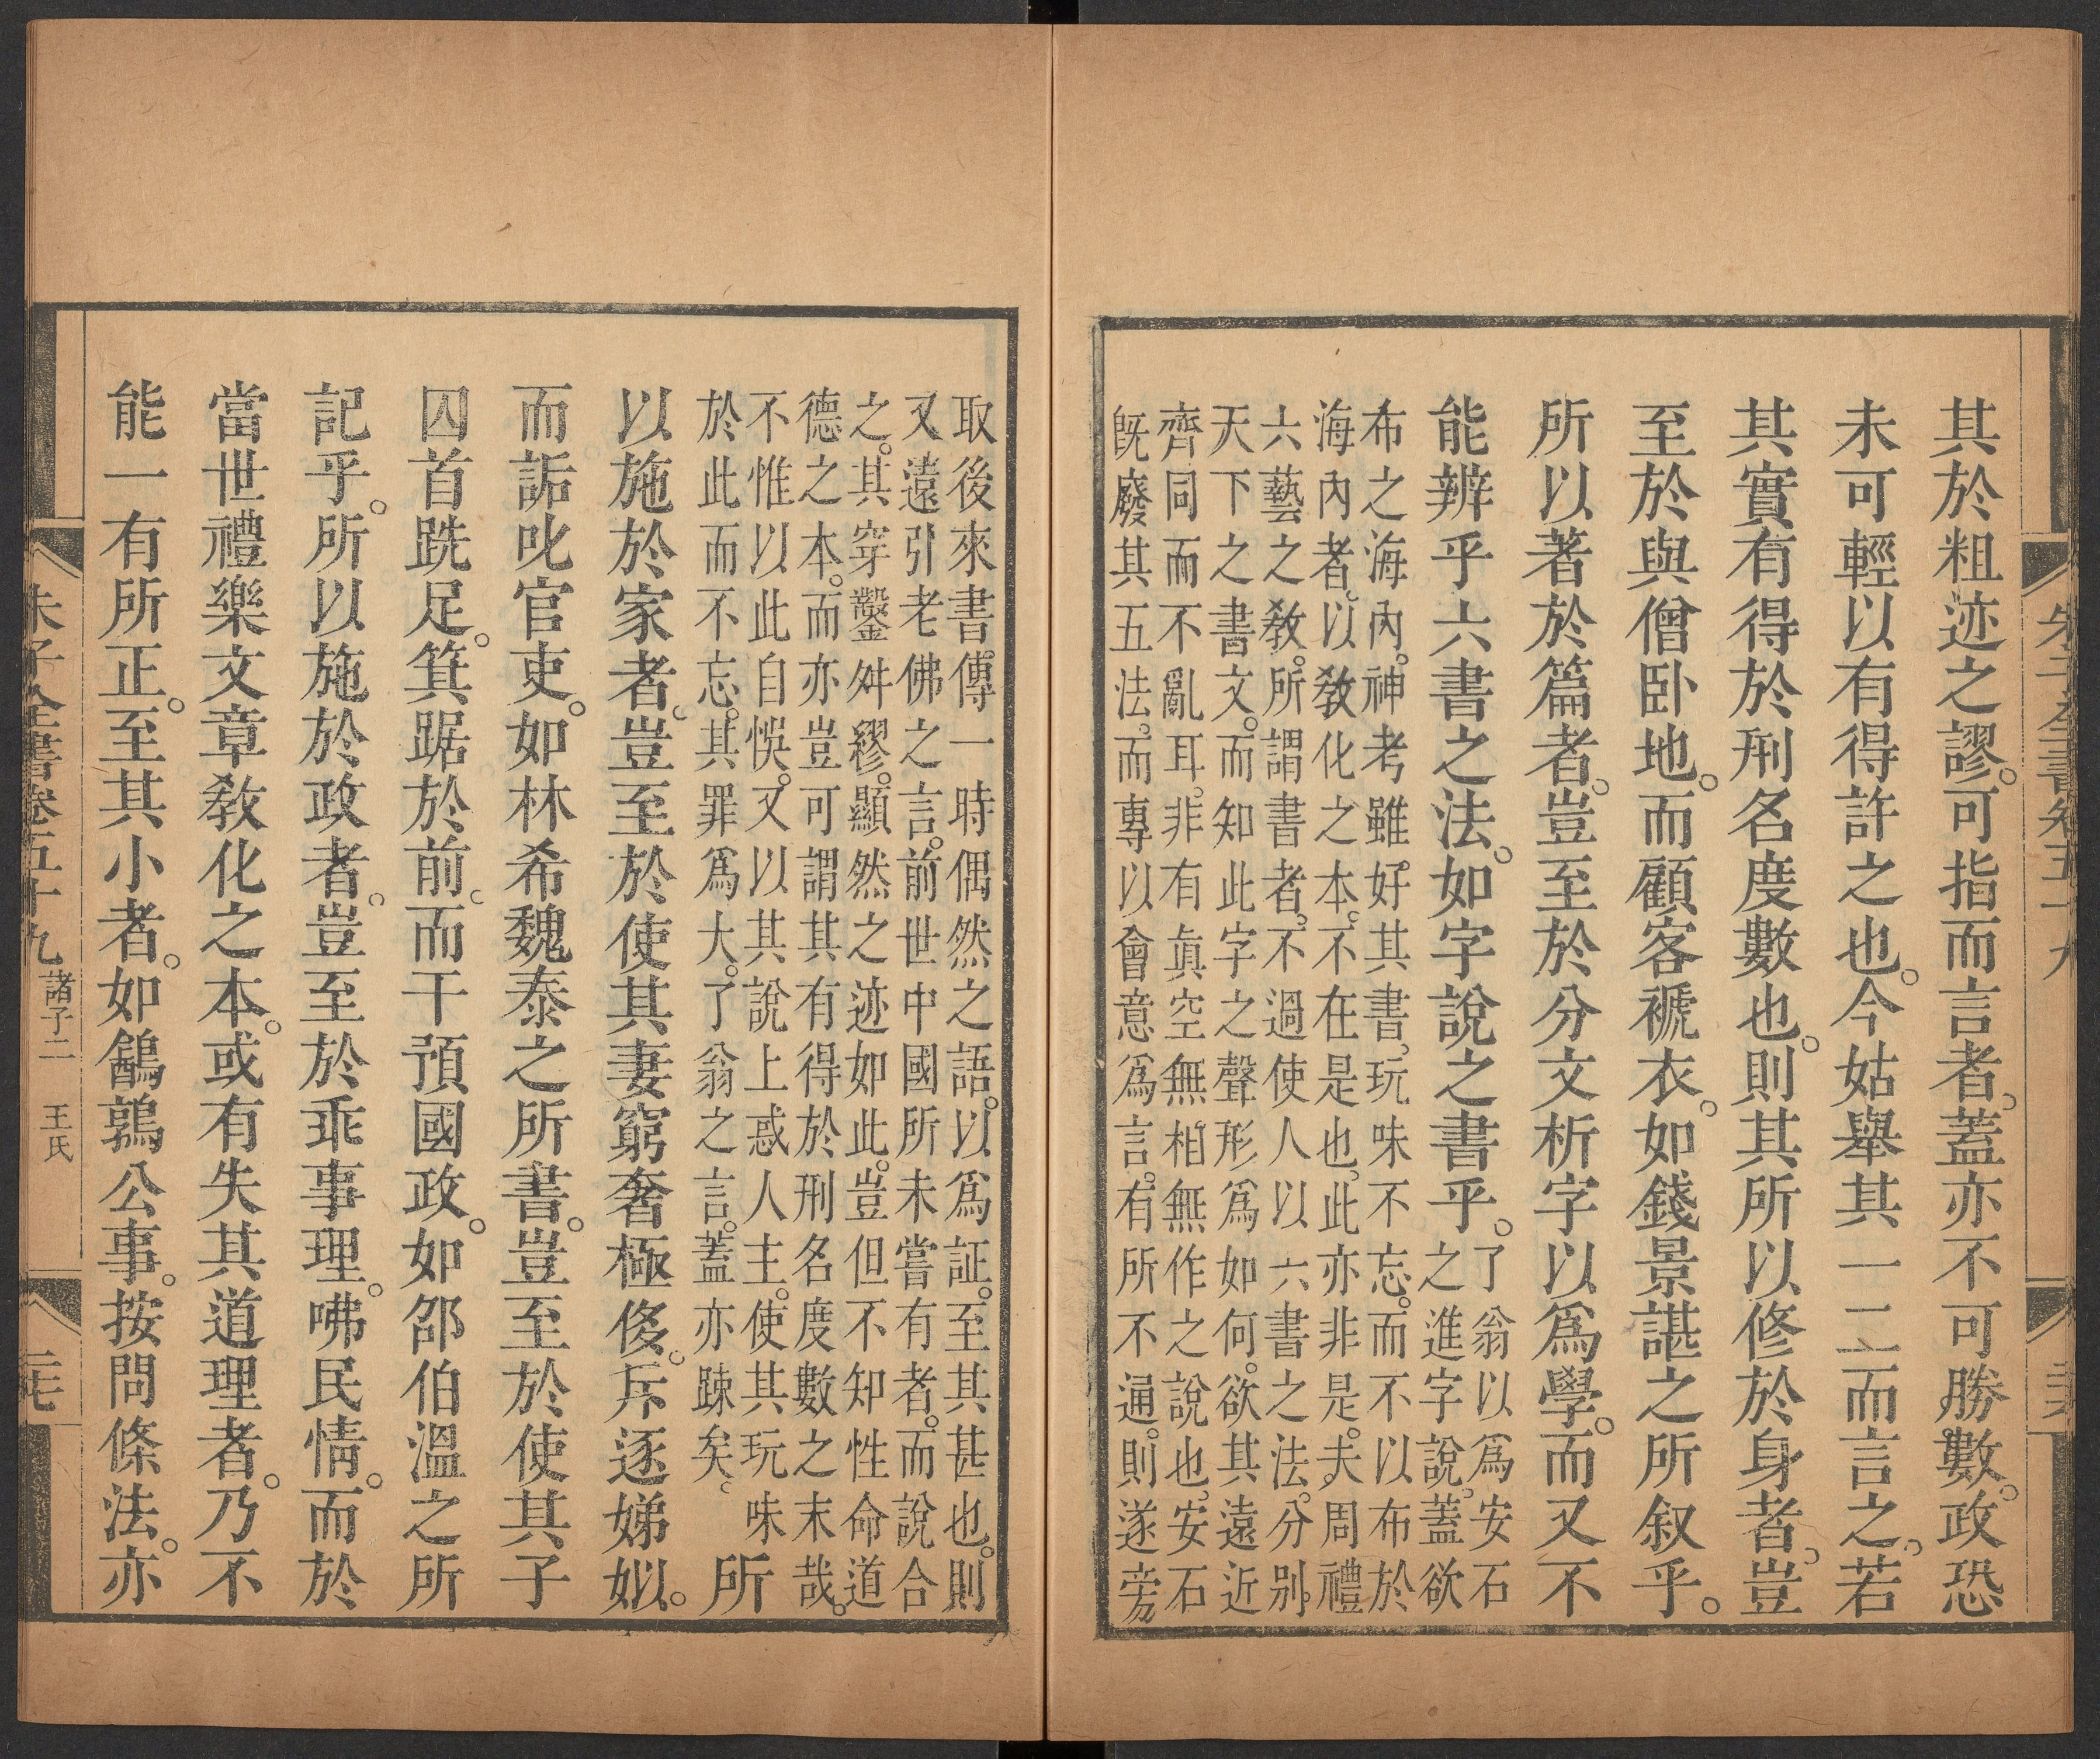 朱子全書卷五十九
其於粗迹之謬。可指而言者。蓋亦不可勝數。政恐
未可輕以有得許之也。今姑舉其一二而言之。若
其實有得於刑名度數也。則其所以修於身者。豈
至於與僧卧地。而顧客褫衣。如錢景諶之所叙乎。
所以著於篇者。豈至於分文析字以爲學。而又不
能辨乎六書之法。如字說之書乎。了翁以爲安石
之進字說。蓋欲
布之海內。神考雖好其書。玩味不忘。而不以布於
海內者。以敎化之本。不在是也。此亦非是。夫周禮
六藝之敎。所謂書者。不過使人以六書之法。分別
天下之書文。而知此字之聲形爲如何。欲其遠近
齊同而不亂耳。非有眞空無相無作之說也。安石
旣廢其五法。而專以會意爲言。有所不通。則遂旁
取後來書傳一時偶然之語。以爲証。至其甚也。則
又遠引老佛之言。前世中國所未嘗有者。而說合
之。其穿鑿舛繆。顯然之迹如此。豈但不知性命道
德之本。而亦豈可謂其有得於刑名度數之末哉。
不惟以此自悞。又以其說上惑人主。使其玩味
於此而不忘。其罪爲大。了翁之言。蓋亦踈矣。所
以施於家者。豈至於使其妻窮奢極侈。斥逐娣姒。
而詬叱官吏。如林希魏泰之所書。豈至於使其子
囚首跣足。箕踞於前。而干預國政。如邵伯溫之所
記乎。所以施於政者。豈至於乖事理。咈民情。而於
當世禮樂文章敎化之本。或有失其道理者。乃不
能一有所正。至其小者。如鬪鶉公事。按問條法。亦
朱子全書卷五十九 諸子二 王氏
三七